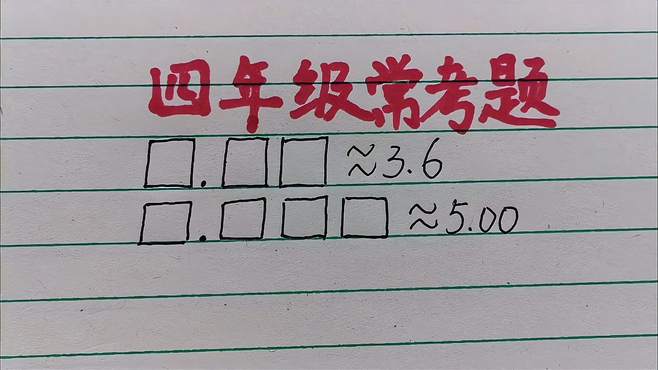 四年级常考题
□.□□≈3.6
□.□□□≈5.00